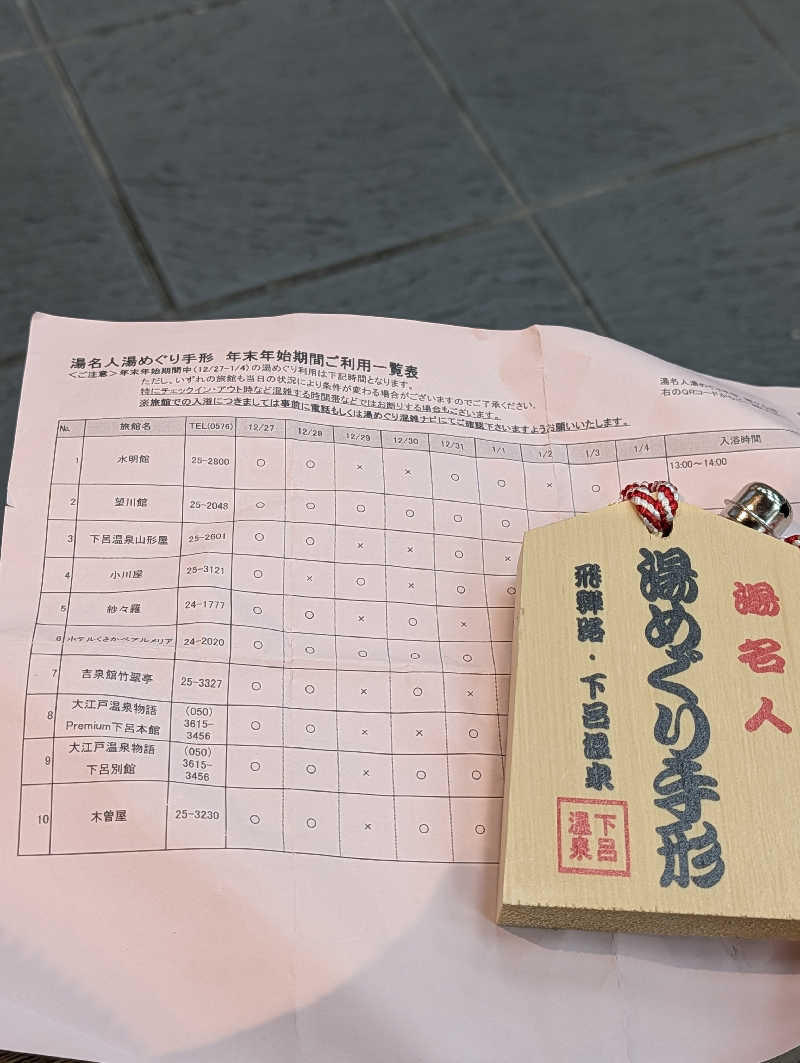 湯名人湯めぐり手形 年末年始期間ご利用一覧表
<ご注意>年末年始期間中(12/27-1/4)の湯めぐり利用は下記時間となります。
ただし、いずれの旅館も当日の状況により条件が変わる場合がございますのでご了承ください。
特にチェックイン・アウト時など混雑する時間帯などではお断りする場合もございます。
※旅館での入浴につきましては事前に電話もしくは湯めぐり混雑ナビにてご確認下さいますようお願いいたします。
湯名人湯め
右のQRコード
No. 旅館名 TEL(0576) 12/27 12/28 12/29 12/30 12/31 1/1 1/2 1/3 1/4 入浴時間
1 水明館 25-2800 ○ ○ × × ○ ○ × ○ 13:00～14:00
2 望川館 25-2048 ○ ○ ○ ○ ○ ○
3 下呂温泉山形屋 25-2601 ○ ○ × × ○ ×
4 小川屋 25-3121 ○ × ○ × ○ ○
5 紗々羅 24-1777 ○ ○ × ○ ×
6 ホテルくさかベアルメリア 24-2020 ○ ○ ○ ○ ○
7 吉泉館竹翠亭 25-3327 ○ ○ × ○ ×
8 大江戸温泉物語 Premium下呂本館 (050) 3615-3456 ○ ○ × × ○
9 大江戸温泉物語 下呂別館 (050) 3615-3456 ○ ○ × ○ ○
10 木曽屋 25-3230 ○ ○ × ○ ○
湯名人
湯めぐり手形
飛騨路・下呂温泉
下呂
温泉